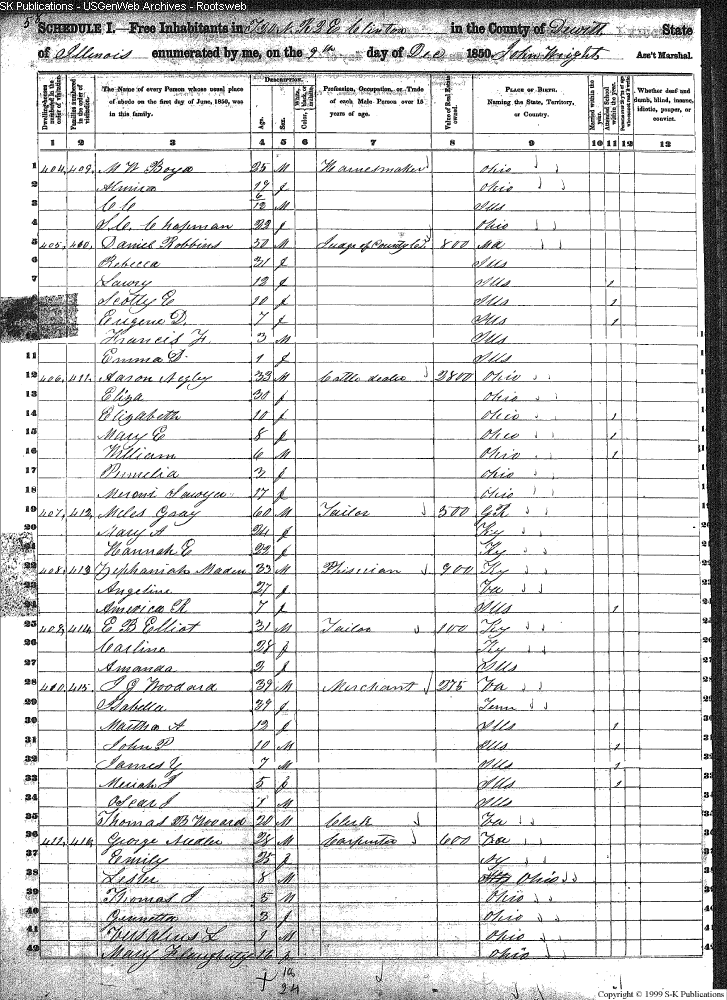 SK Publications - USGenWeb Archives - Rootsweb
SCHEDULE I.—Free Inhabitants in Clinton in the County of Dewitt State
of Illinois enumerated by me, on the 9th day of Dec 1850. John Wright Ass't Marshal.
Dwelling-houses numbered in the order of visitation.
Families numbered in the order of visitation.
The Name of every Person whose usual place of abode on the first day of June, 1850, was in this family.
DESCRIPTION.
Age.
Sex.
Color, White, black, or mulatto.
Profession, Occupation, or Trade of each Male Person over 15 years of age.
Value of Real Estate owned.
PLACE OF BIRTH. Naming the State, Territory, or Country.
Married within the year.
Attended School within the year.
Whether deaf and dumb, blind, insane, idiotic, pauper, or convict.
1 2 3 4 5 6 7 8 9 10 11 12 13
1 404 409 M W Boyd 25 M Harnessmaker Ohio
2 Almira 19 f Ohio
3 C C 6/12 M Ills
4 S. C. Chapman 22 f Ohio
5 405 410 Daniel Robbins 30 M Judge of County Ct 800 Ma
6 Rebecca 31 f Ills
7 12 f Ills 1
Scotty E 10 f Ills 1
Eugene D. 7 f Ills 1
Francis F. 3 M Ills
11 Emma D. 1 f Ills
12 406 411 Aaron Negley 33 M Cattle dealer 2800 Ohio
13 Eliza 30 f Ohio
14 Elizabeth 10 f Ohio 1
15 Mary E 8 f Ohio 1
16 William 6 M Ohio 1
17 Permelia 2 f Ohio
18 Sawyer 17 f Ohio
19 407 412 Miles Gray 60 M Tailor 500 Ky
20 Mary A 24 f Ky
21 Hannah E 22 f Ky
22 408 413 Zephaniah Maden 33 M Phisician 900 Ky
23 Angeline 27 f Va
24 America R. 7 f Ills 1
25 408 414 E B Elliot 31 M Tailor 100 Ky
26 Carline 28 f Ky
27 Amanda 2 f Ills
28 410 415 J G Woodard 39 M Merchant 275 Va
29 Isabella 29 f Tenn
30 Martha A 12 f Ills 1
31 John P 10 M Ills 1
32 James Y 7 M Ills 1
33 5 f Ills 1
34 Oscar J 1 M Ills
35 Thomas B Woodard 20 M Clerk Va
36 411 416 George 28 M Carpenter 600 Va
37 Emily 25 f Ny
38 Lester 8 M Ohio
39 Thomas J 5 M Ohio
40 3 f Ohio
41 Vesalius L 1 M Ohio
42 Mary 16 f Ohio
18
24
Copyright © 1999 S-K Publications